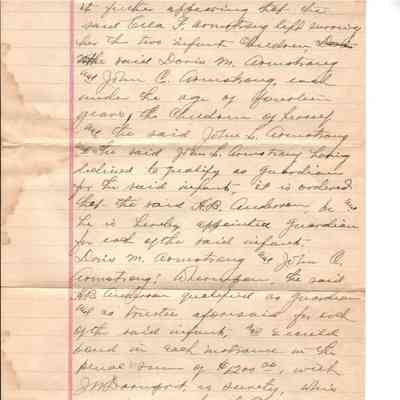 it further appearing that the
said Ella F. Armstrong left surviving
her the two infant children,
the said Doris M. Armstrong
and John C. Armstrong, each
under the age of fourteen
years, the children of herself
and the said John L. Armstrong
the said John L. Armstrong having
declined to qualify as guardian
for the said infants, it is ordered
that the said H.B. Anderson, be and
he is hereby appointed Guardian
for each of the said infants
Doris M. Armstrong and John C.
Armstrong: Whereupon, the said
HB Anderson qualified as guardian
and as trustee aforesaid for each
of the said infants, and executed
bond in each instance in the
penal sum of $1200.00, with
J.M. Davenport, as surety, this